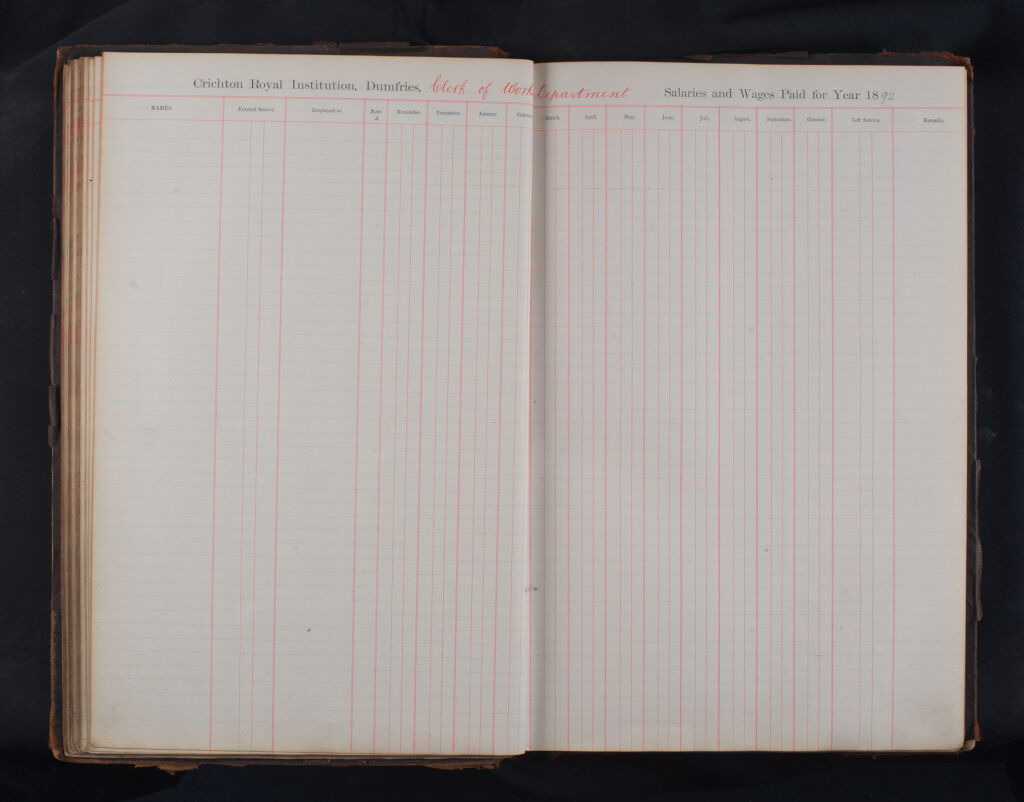 Crichton Royal Institution, Dumfries, Clerk of Work Department Salaries and Wages Paid for Year 1892
NAMES. Entered Service. Employed as Rate. November. December. January. March. April. May. June. July. August. September. October. Left Service. Remarks.
£